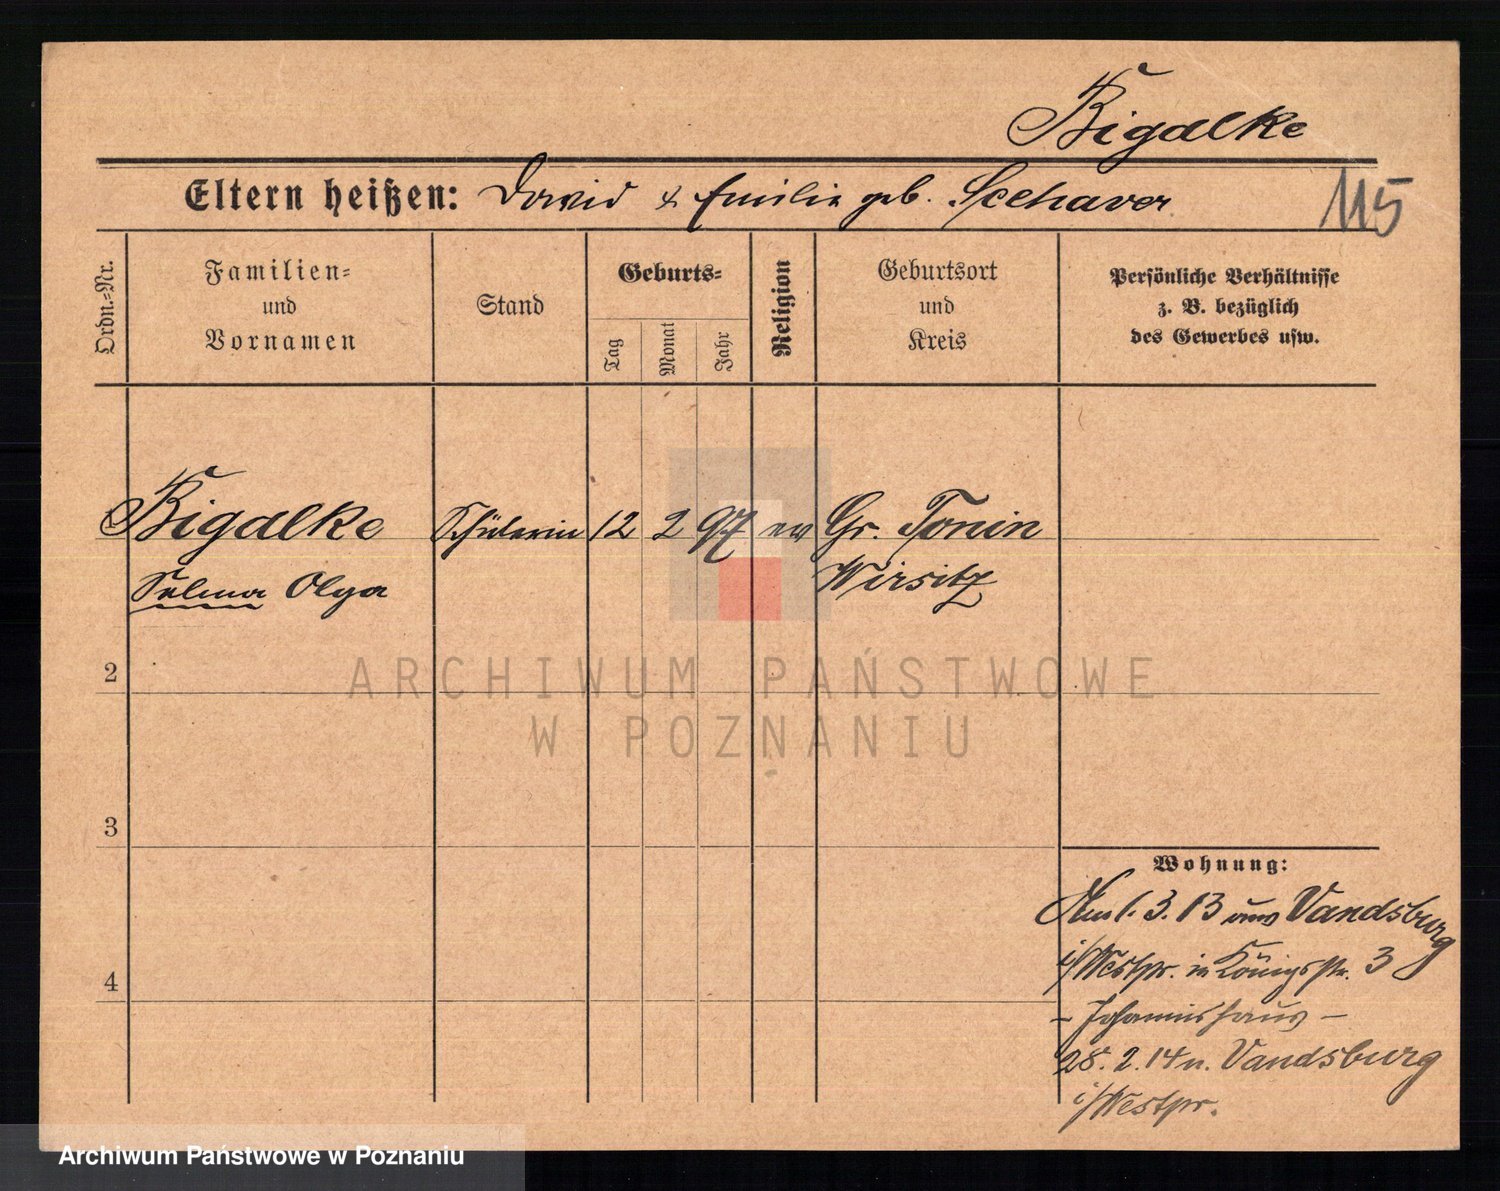 Bigalke
Eltern heißen: David & Emilie geb. Seehaver
115
Ordn.=Nr.
Familien=
und
Vornamen
Stand
Geburts=
Tag
Monat
Jahr
Religion
Geburtsort
und
Kreis
Persönliche Verhältnisse
z. B. bezüglich
des Gewerbes usw.
Bigalke Schülerin 12 2 97 ev Gr. Tonin
Selma Olga Wirsitz
2
ARCHIWUM PAŃSTWOWE
W POZNANIU
3
Wohnung:
1. 3. 13 aus Vandsburg
i/Westpr. in Königsstr. 3
– Johannishaus –
28. 2. 14 n. Vandsburg
i/Westpr.
4
Archiwum Państwowe w Poznaniu